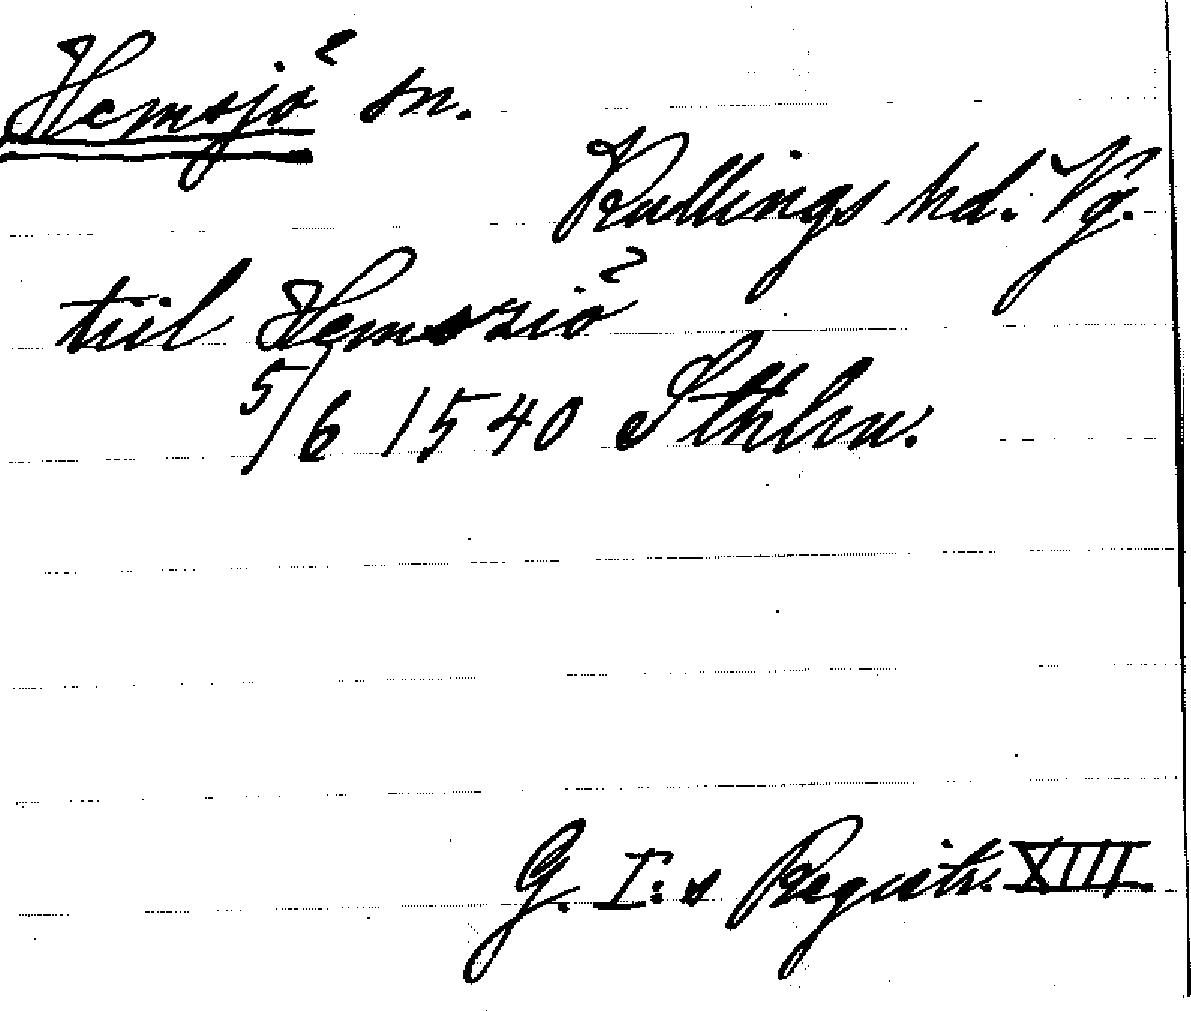 Hemsjö sn.
Kullings hd. Vg.
tiil Hemsziö
5/6 1540 Sthlm.
G. I:s Registr. XIII.